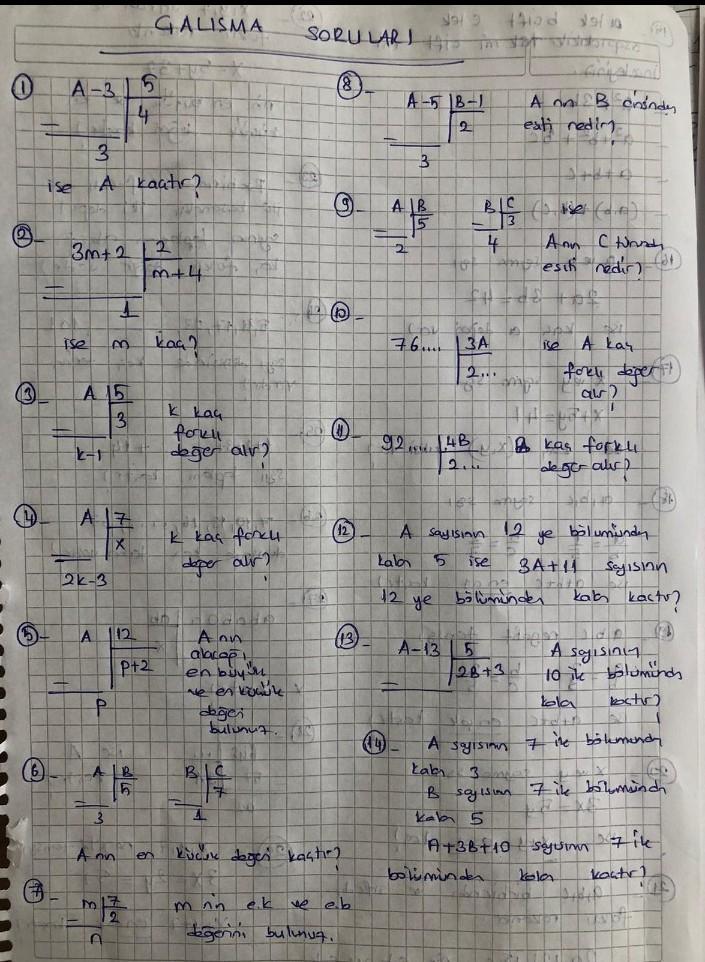 GALISMA SORULARI
① A-3 | 5
4
3
ise A kaçtır?
②- 3m+2 | 2
m+4
1
ise m kaç?
③- A | 5
3
k-1
k kaç
farklı
değer alır?
④- A | 7
x
2k-3
k kaç farklı
değer alır?
⑤- A | 12
p+2
p
A nın
alacağı
en büyük
ve en küçük
değeri
bulunuz.
⑥- A | B
5
3
B | C
7
1
A nın en küçük değeri kaçtır?
⑦- m | 7
2
n
m nin e.k ve e.b
değerini bulunuz.
⑧- A-5 | B-1
2
3
A nın B cinsinden
eşiti nedir?
⑨- A | B
5
2
B | C
3
4
ise
A nın C türünden
eşiti nedir?
⑩-
76.... | 3A
2...
ise A kaç
farklı değer
alır?
⑪- 92..... | 4B
2...
B kaç farklı
değer alır?
⑫- A sayısının 12 ye bölümünden
kalan 5 ise 3A+11 sayısının
12 ye bölümünden kalan kaçtır?
⑬- A-13 | 5
2B+3
A sayısının
10 ile bölümünden
kalan kaçtır?
⑭- A sayısının 7 ile bölümünden
kalan 3
B sayısının 7 ile bölümünden
kalan 5
A+3B+10 sayısının 7 ile
bölümünden kalan kaçtır?